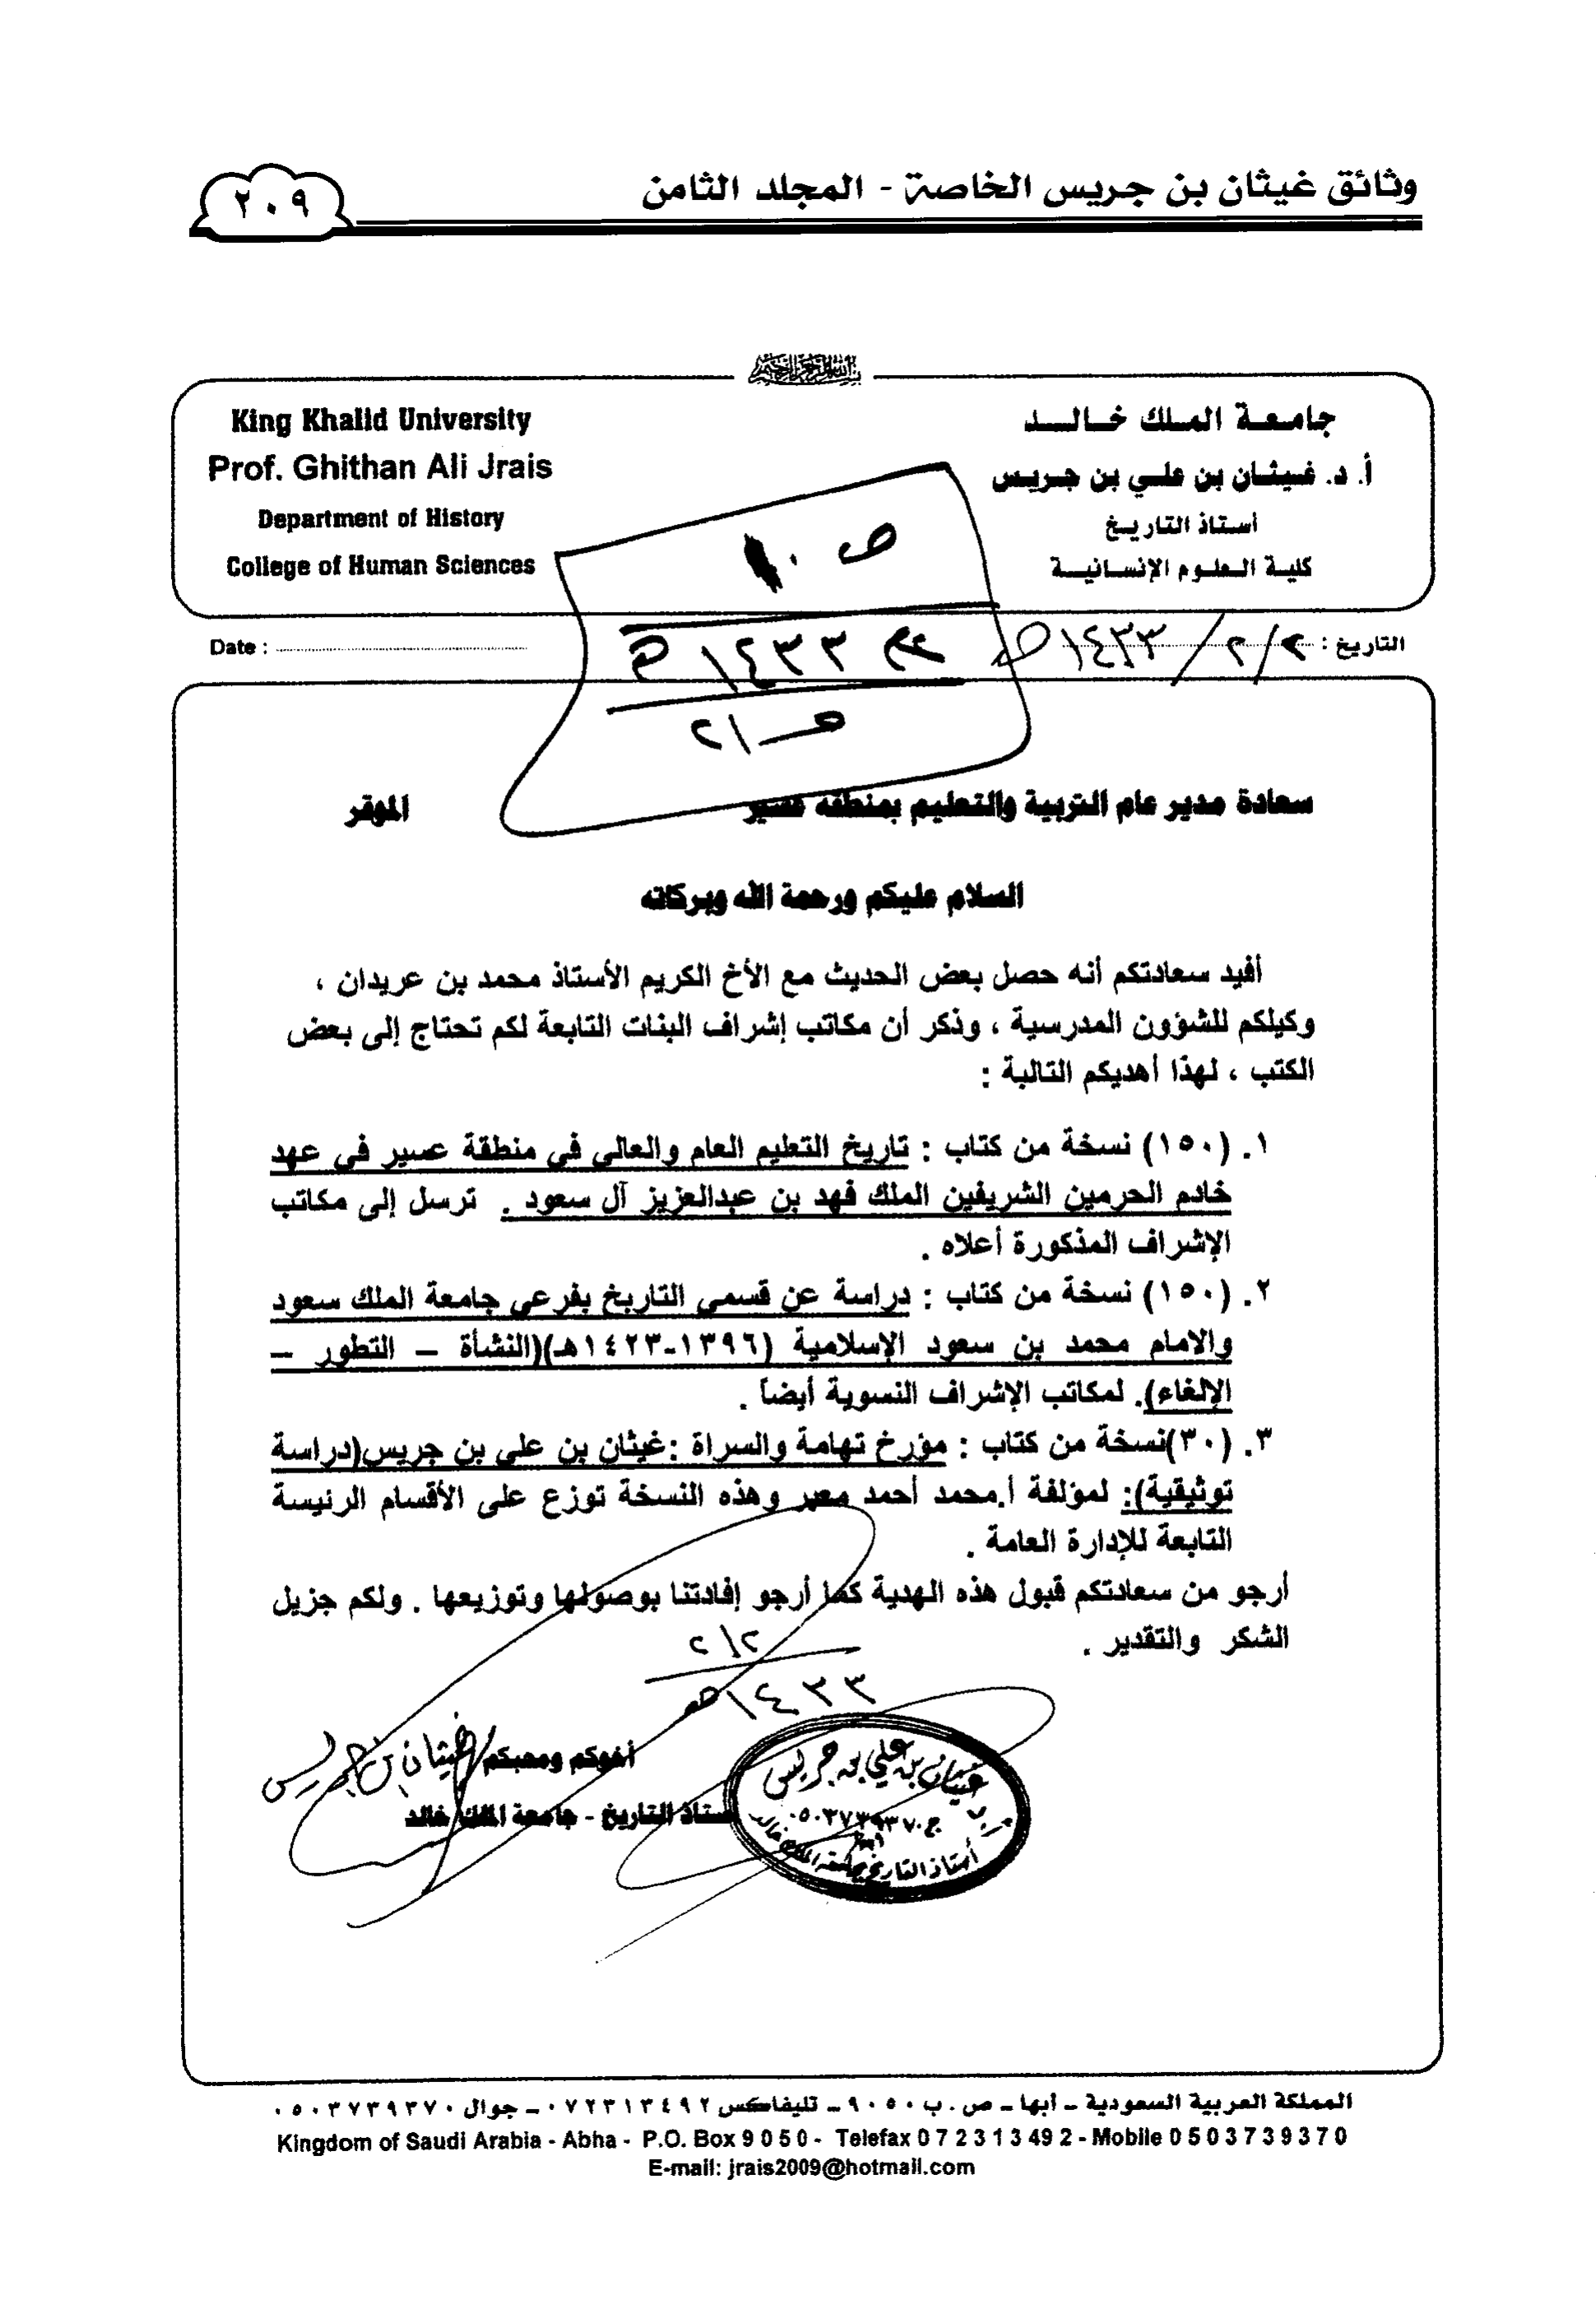 وثائق غيثان بن جريس الخاصة - المجلد الثامن
٢٠٩
بسم الله الرحمن الرحيم
جامعة الملك خالد
أ. د. غيثان بن علي بن جريس
أستاذ التاريخ
كلية العلوم الإنسانية
King Khalid University
Prof. Ghithan Ali Jrais
Department of History
College of Human Sciences
التاريخ : ٢/٢/١٤٣٣هـ
Date :
١٤٣٣
سعادة مدير عام التربية والتعليم بمنطقة عسير الموقر
السلام عليكم ورحمة الله وبركاته
أفيد سعادتكم أنه حصل بعض الحديث مع الأخ الكريم الأستاذ محمد بن عريدان ،
وكيلكم للشؤون المدرسية ، وذكر أن مكاتب إشراف البنات التابعة لكم تحتاج إلى بعض
الكتب ، لهذا أهديكم التالية :
١. (١٥٠) نسخة من كتاب : تاريخ التعليم العام والعالي في منطقة عسير في عهد
خادم الحرمين الشريفين الملك فهد بن عبدالعزيز آل سعود . ترسل إلى مكاتب
الإشراف المذكورة أعلاه .
٢. (١٥٠) نسخة من كتاب : دراسة عن قسمي التاريخ بفرعي جامعة الملك سعود
والامام محمد بن سعود الإسلامية (١٣٩٦-١٤٢٣هـ)(النشأة – التطور –
الإلغاء). لمكاتب الإشراف النسوية أيضاً .
٣. (٣٠)نسخة من كتاب : مؤرخ تهامة والسراة :غيثان بن علي بن جريس(دراسة
توثيقية): لمؤلفة أ.محمد أحمد معبر وهذه النسخة توزع على الأقسام الرئيسة
التابعة للإدارة العامة .
أرجو من سعادتكم قبول هذه الهدية كما أرجو إفادتنا بوصولها وتوزيعها . ولكم جزيل
الشكر والتقدير .
٢/٢
١٤٣٣هـ
أخوكم ومحبكم / غيثان بن جريس
أستاذ التاريخ - جامعة الملك خالد
غيثان بن علي بن جريس
ج٠٥٠٣٧٣٩٣٧٠
أستاذ التاريخ بجامعة الملك خالد
المملكة العربية السعودية – أبها – ص . ب ٩٠٥٠ – تليفاكس ٠٧٢٣١٣٤٩٢ – جوال ٠٥٠٣٧٣٩٣٧٠
Kingdom of Saudi Arabia - Abha - P.O. Box 9 0 5 0 - Telefax 0 7 2 3 1 3 49 2 - Mobile 0 5 0 3 7 3 9 3 7 0
E-mail: jrais2009@hotmail.com